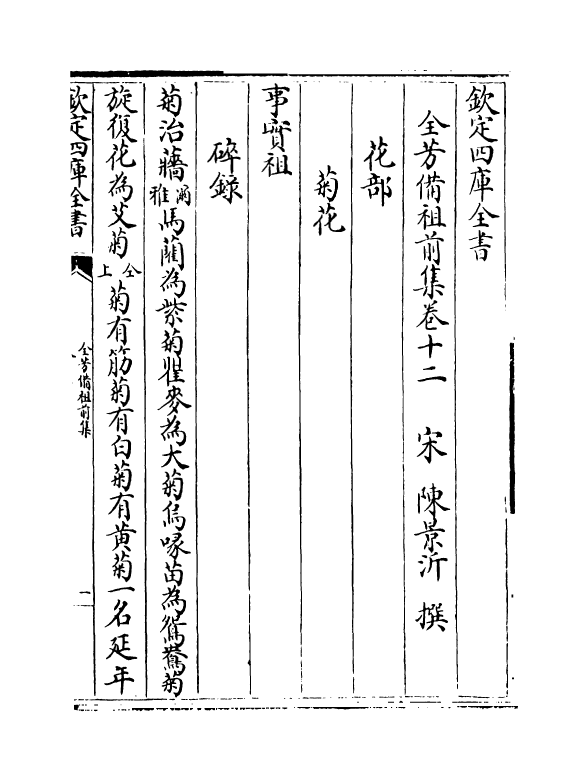 欽定四庫全書
全芳備祖前集卷十二　宋　陳景沂　撰
花部
菊花
事實祖
碎錄
菊治蘠爾雅馬藺為紫菊瞿麥為大菊烏喙苗為鴛鴦菊
旋復花為艾菊仝上菊有筋菊有白菊有黃菊一名延年
欽定四庫全書
全芳備祖前集
一